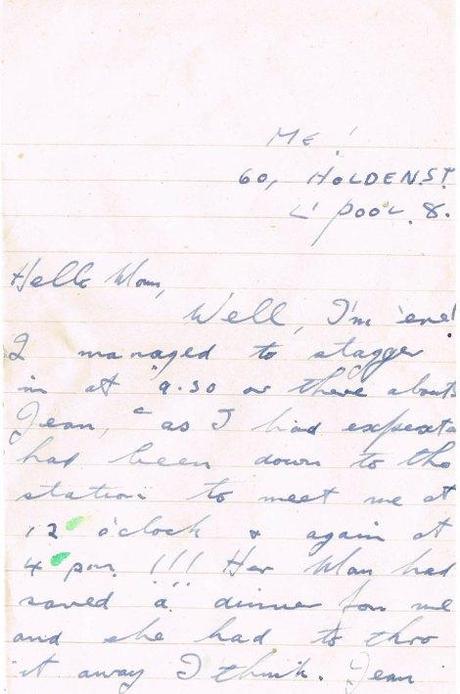 ME!
60, HOLDEN ST.
L'POOL. 8.
Hello Mom,
Well, I'm 'ere!
I managed to stagger
in at 9.30 or there abouts
Jean, as I had expected
had been down to the
station to meet me at
12 o'clock & again at
4 pm. !!! Her Mom had
saved a dinner for me
and she had to thro
it away I think. Jean